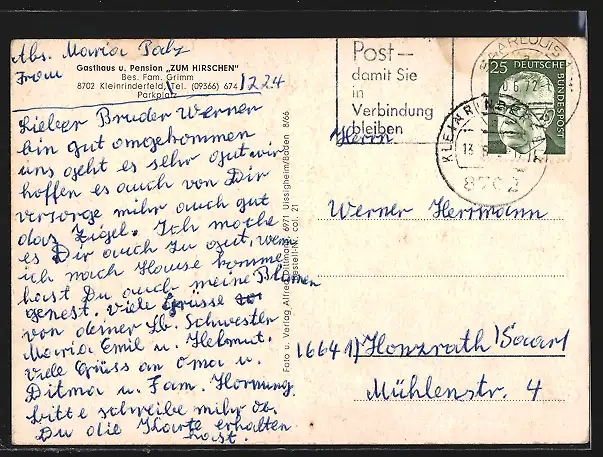 Abs. Maria Palz
From
Gasthaus u. Pension „ZUM HIRSCHEN"
Bes. Fam. Grimm
8702 Kleinrinderfeld, Tel. (09366) 674
Parkplatz
1224
Lieber Bruder Werner
bin gut omgekommen
uns geht es sehr gut wir
hoffen es auch von Dir
versorge mihr auch gut
das Zigel. Ich mache
es Dir auch zu gut, wen
ich nach Hause komme
hast Du auch meine Blumen
genest. viele Grüsse
von deiner Lb. Schwester
Maria Emil u. Helmut.
viele Grüss an Oma u.
Ditma u. Fam. Hornung
bitte schreibe mihr ob
Du die Karte erhalten
hast.
Foto u. Verlag Alfred Dittmann, 6971 Uissigheim/Baden 8/66
Bestell-Nr. col. 21
Post—
damit Sie
in
Verbindung
bleiben
SAARLOUIS
0.6.72
25 DEUTSCHE
BUNDESPOST
KLEINRINDERFELD
13
8702
Herrn
Werner Herrmann
(6641) Honzrath (Saar)
Mühlenstr. 4